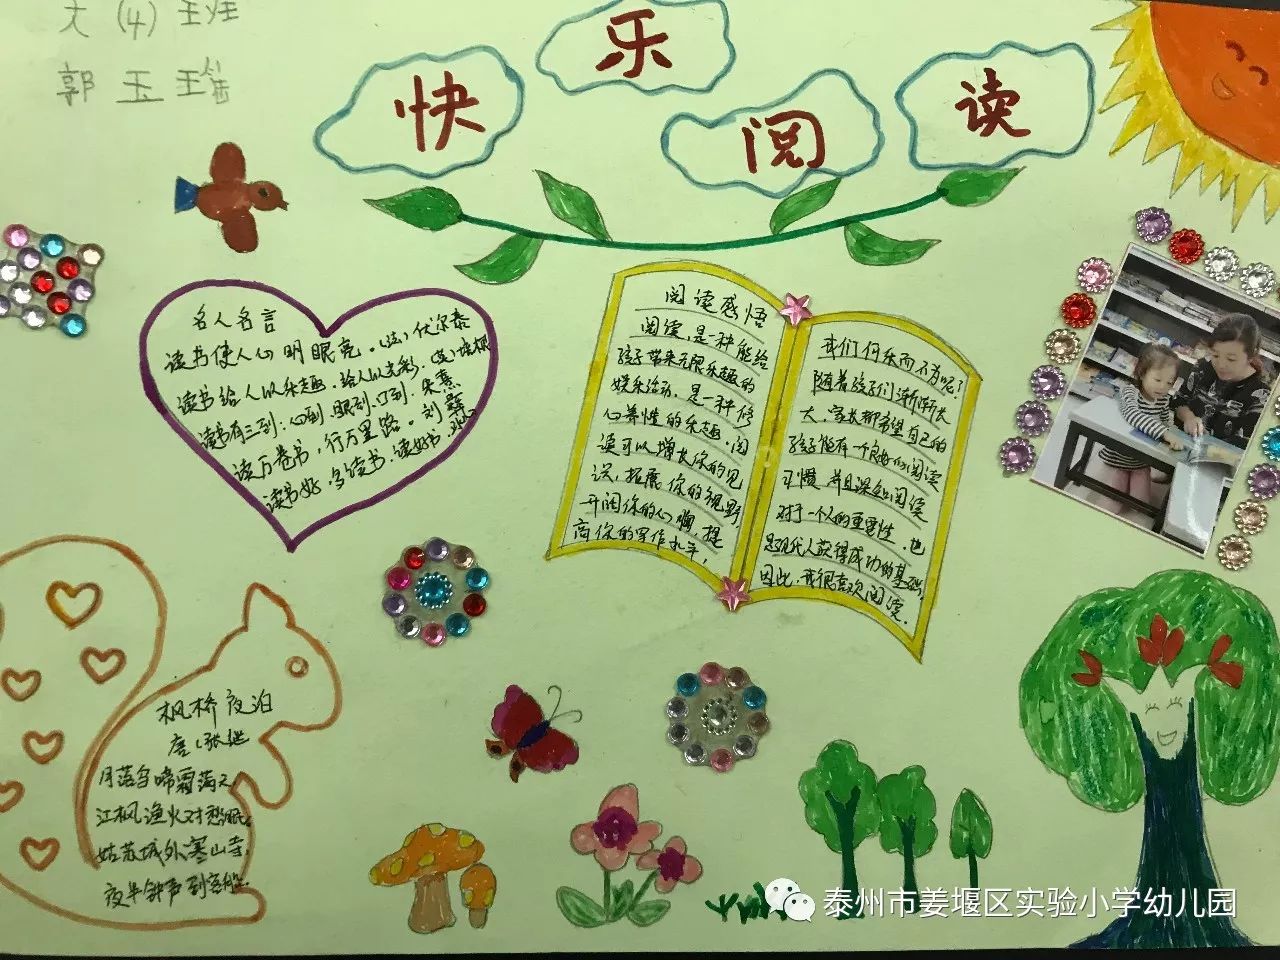 大(4)班
郭玉瑶
快乐阅读
名人名言
读书使人心明眼亮。(法)伏尔泰
读书给人以乐趣,给人以光彩,
读书有三到:心到,眼到,口到。朱熹
读万卷书,行万里路。刘彝
读书好,多读书,读好书。冰心
阅读感悟
阅读,是一种能给
孩子带来无限乐趣的
娱乐活动,是一种修
心养性的乐趣。阅
读可以增长你的见
识,拓展你的视野,
开阔你的心胸,提
高你的写作水平,
我们何乐而不为呢?
随着孩子们渐渐长
大,家长都希望自己的
孩子能有一个良好的阅读
习惯,并且深知阅读
对于一个人的重要性,也
是现代人获得成功的基础,
因此,我很喜欢阅读。
枫桥夜泊
唐(张继
月落乌啼霜满天,
江枫渔火对愁眠。
姑苏城外寒山寺,
夜半钟声到客船。
泰州市姜堰区实验小学幼儿园